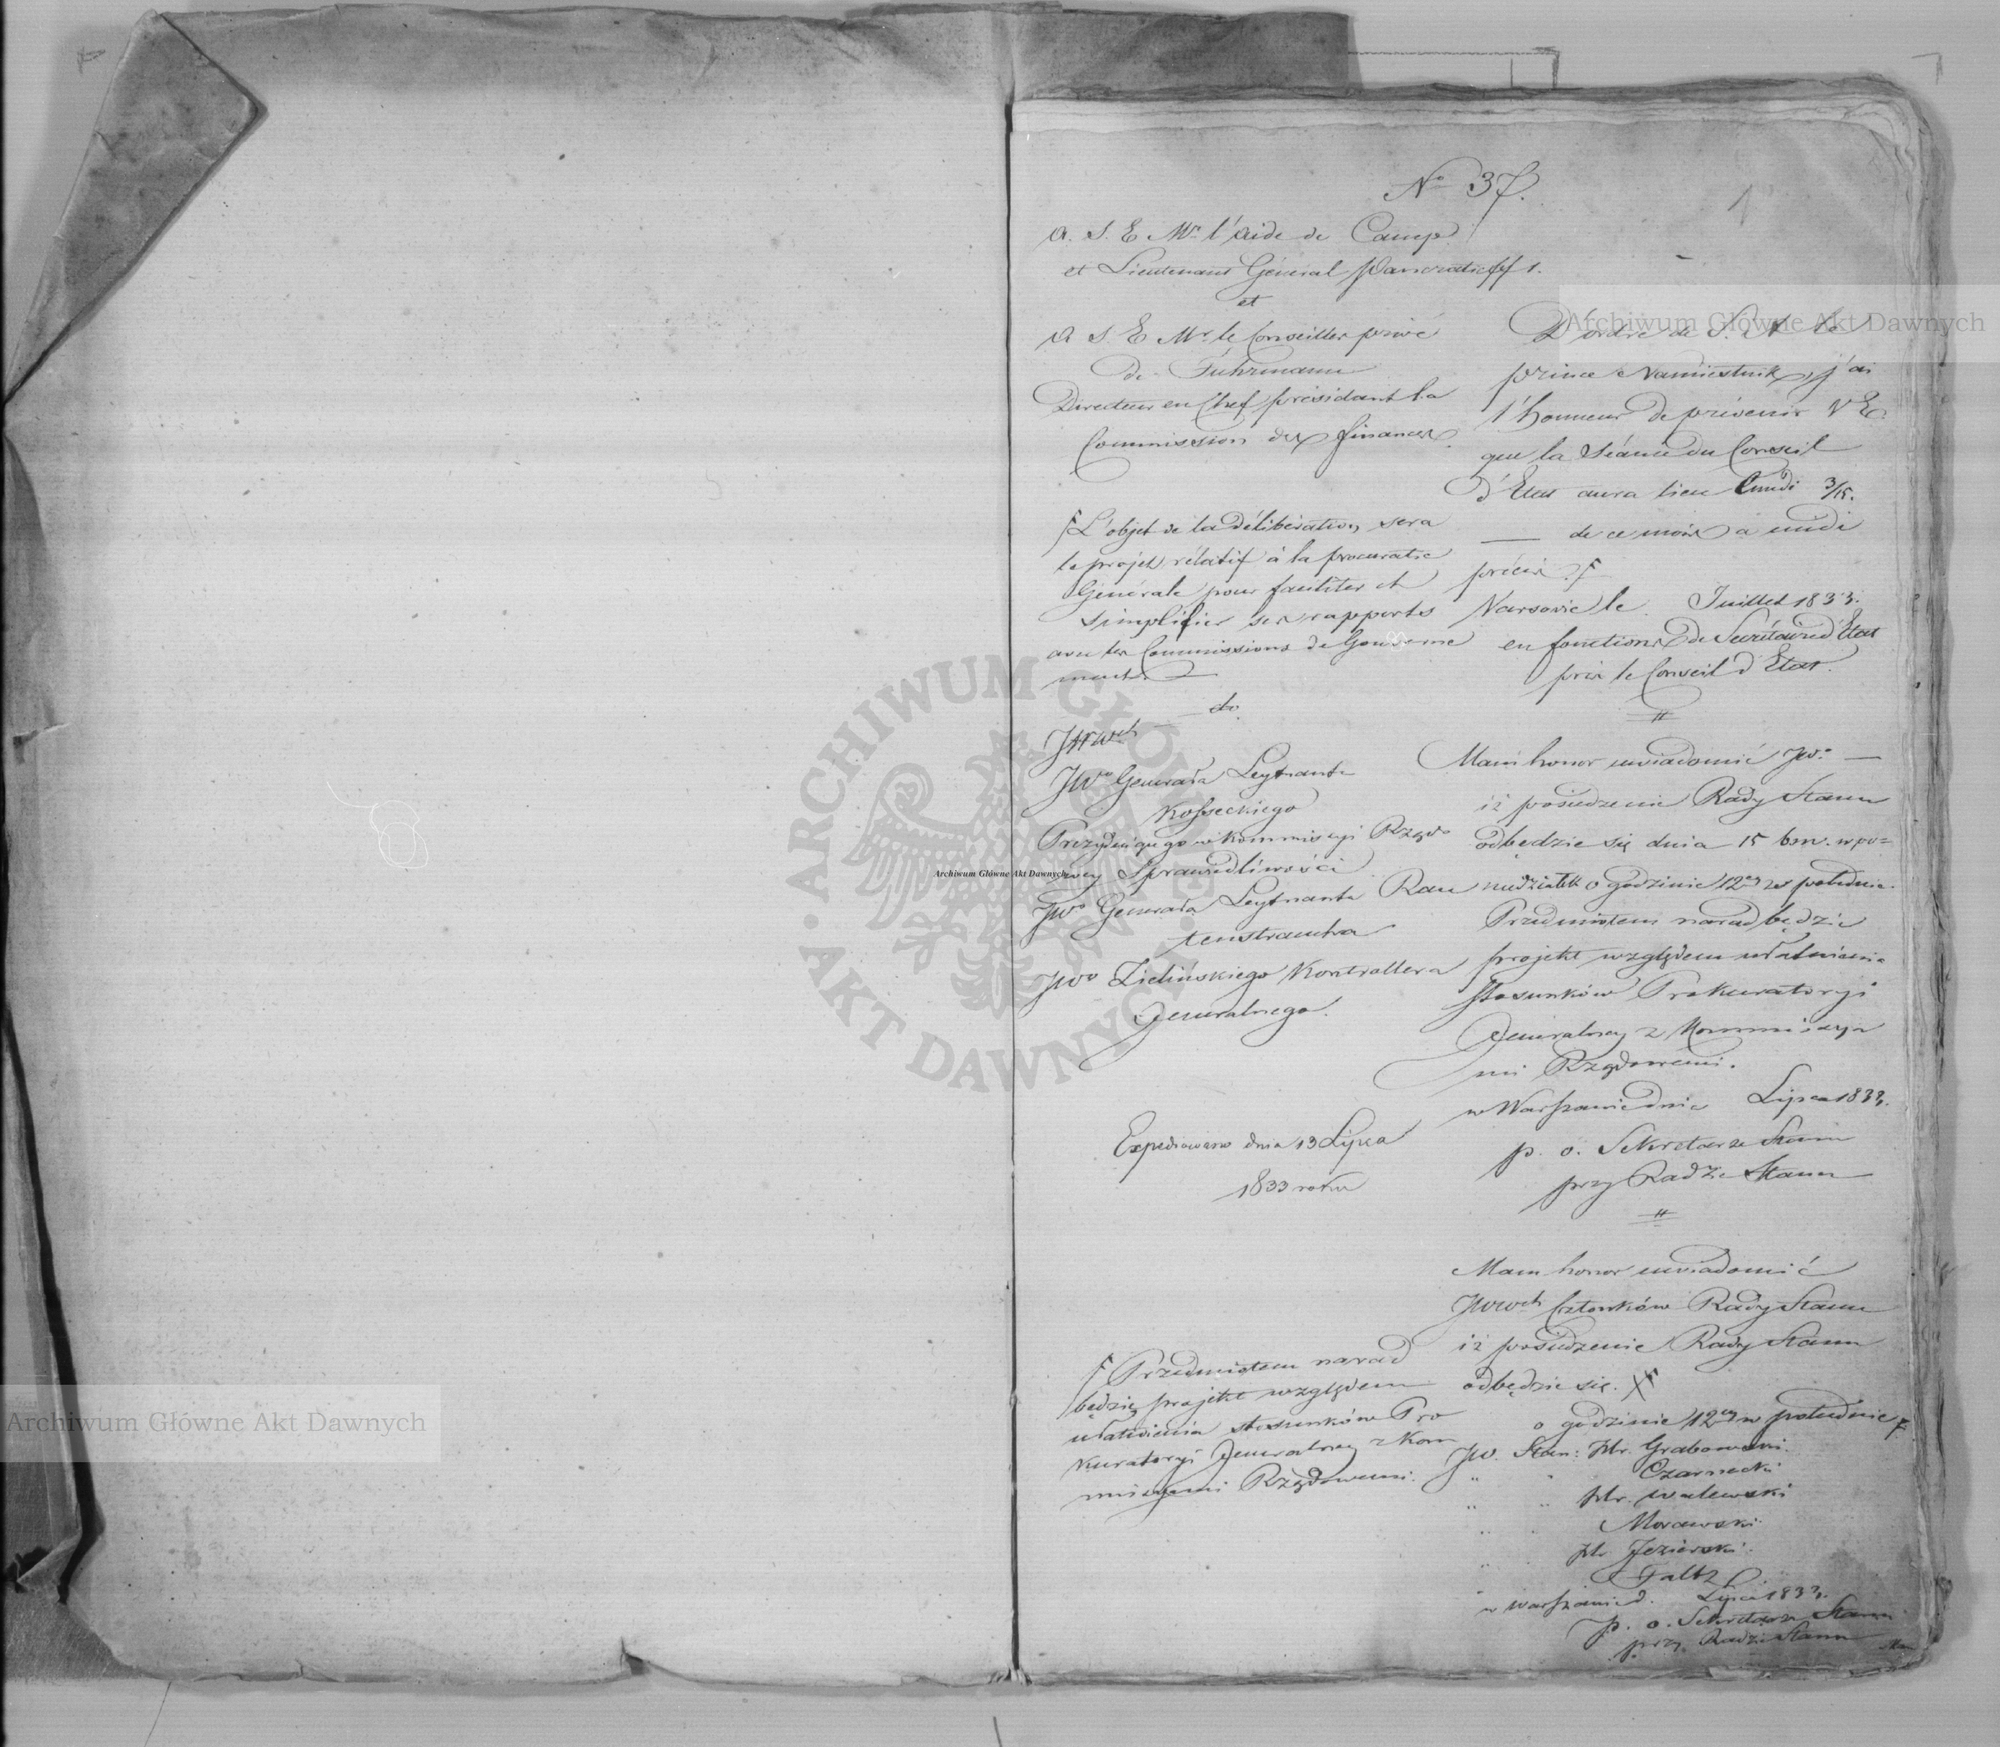 No 37.
1
A. S. E. Mr. l'Aide de Camp
et Lieutenant Général Pancratieff 1.
et
A S. E. Mr. le Conseiller privé
de Fuhrmann
Directeur en Chef présidant la
Commission des finances.
D'ordre de S. A. le
prince Namiestnik, j'ai
l'honneur de prévenir V. E.
que la Séance du Conseil
d'Etat aura lieu Lundi 3/15.
de ce mois à midi
précis. F
F L'objet de la délibération sera
le projet rélatif à la procuratie
Générale pour faciliter et
simplifier ses rapports
avec les Commissions de Gouverne
ment.
Varsovie le Juillet 1833.
en fonctions de Secrétaire d'Etat
près le Conseil d'Etat.
do
JWwch
JWo Generała Leytnanta
Kosseckiego
Prezyduiącego w Kommissyi Rządo
wey Sprawiedliwości
JWo Generała Leytnanta Rau
tenstraucha
JWo Zielińskiego Kontrollera
Generalnego.
Mam honor uwiadomić JWo
iż posiedzenie Rady Stanu
odbędzie się dnia 15 bm. w po=
niedziałek o godzinie 12ey w południe.
Przedmiotem narad będzie
projekt względem ułatwienia
stosunków Prokuratoryi
Generalney z Kommissya
mi Rządowemi.
w Warszawie dnia Lipca 1833.
p. o. Sekretarza Stanu
przy Radzie Stanu
Expediowano dnia 13 Lipca
1833 roku
Mam honor uwiadomić
JWwch Członków Rady Stanu
iż posiedzenie Rady Stanu
odbędzie się.
o godzinie 12ey w południe F
F Przedmiotem narad
będzie projekt względem
ułatwienia stosunków Pro
kuratoryi Generalney z Kom
missyami Rządowemi.
JW. Stan: Hr. Grabowski.
Czarnecki
Hr. Walewski
Morawski
Hr. Jezierski
Faltz
w Warszawie d. Lipca 1833.
p. o. Sekretarza Stanu
przy Radzie Stanu
Archiwum Główne Akt Dawnych
Archiwum Główne Akt Dawnych
Archiwum Główne Akt Dawnych
ARCHIWUM GŁÓWNE AKT DAWNYCH